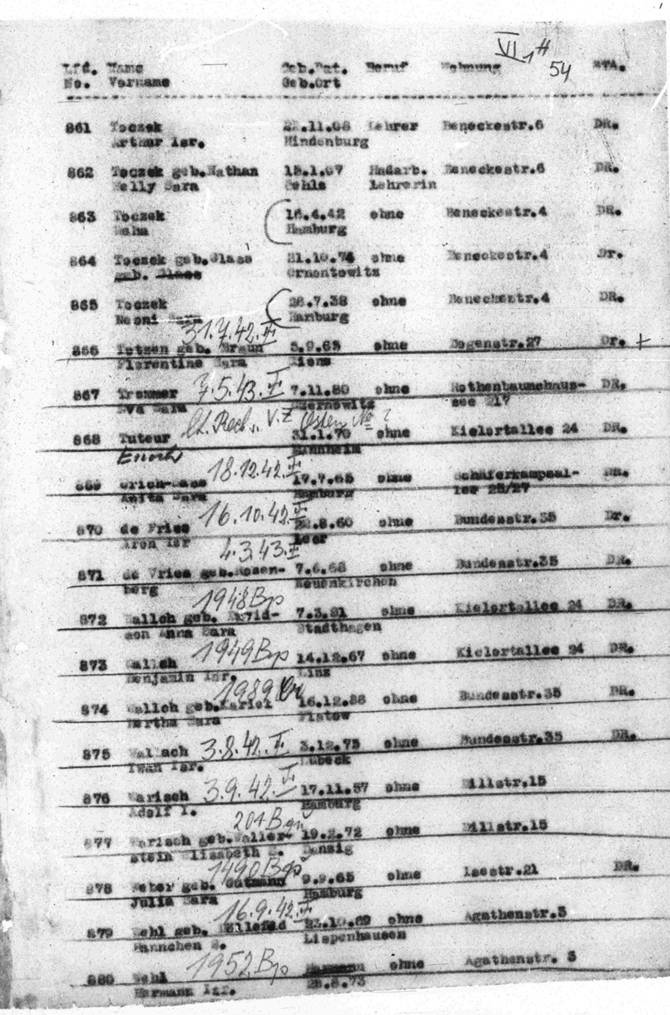 VI 1 #
54
Lfd. Name Geb.Dat. Beruf Wohnung STA.
No. Vorname Geb.Ort
861 Toczek 22.11.08 Lehrer Beneckestr.6 DR.
Arthur Isr. Hindenburg
862 Toczek geb.Nathan 15.1.07 Handarb. Beneckestr.6 DR.
Nelly Sara Lehrerin
863 Toczek 16.4.42 ohne Beneckestr.4 DR.
Hamburg
864 Toczek geb.Glass 31.10.74 ohne Beneckestr.4 Dr.
865 Toczek 26.7.38 ohne Beneckestr.4 DR.
Hamburg
31.7.42.
866 geb. Braun 5.9.65 ohne Bogenstr.27 Dr. +
Florentine Sara
7.5.43.
867 7.11.80 ohne Rothenbaumchaus- DR.
Eva Sara Czernowitz see 217
868 Tuteur 31.1.70 ohne Kielortallee 24 DR.
Mannheim
18.12.42.
869 17.7.65 ohne Schäferkampsal- DR.
Anita Sara Hamburg lee 25/27
16.10.42.
870 de Fries 22.8.60 ohne Bundesstr.35 Dr.
Aron Isr Leer
4.3.43.
871 de Vries geb.Rosen- 7.6.68 ohne Bundesstr.35 DR.
berg Neuenkirchen
1948 Bp
872 Wallch geb. David- 7.3.81 ohne Kielortallee 24 DR.
son Anna Sara Stadthagen
1949 Bp
873 14.12.67 ohne Kielortallee 24 DR.
Benjamin Isr.
1989
874 Wallch geb. 16.12.88 ohne Bundesstr.35 DR.
Bertha Sara Flatow
875 Wallach 3.8.42. 3.12.75 ohne Bundesstr.35 DR.
Iwan Isr. Lübeck
876 Warisch 3.9.42. 17.11.57 ohne Dillstr.15
Adolf I. Hamburg
204
877 Warisch geb.Waller- 19.2.72 ohne Dillstr.15
stein Elisabeth S. Danzig
1490 Bp
878 Weber geb. Gutmann 9.9.65 ohne Isestr.21 DR.
Julia Sara Hamburg
16.9.42.
879 Wehl geb. 23.10.69 ohne Agathenstr.3
Hannchen S. Lispenhausen
1952 Bp
880 Wehl ohne Agathenstr. 3
Hermann Isr. 28.8.73